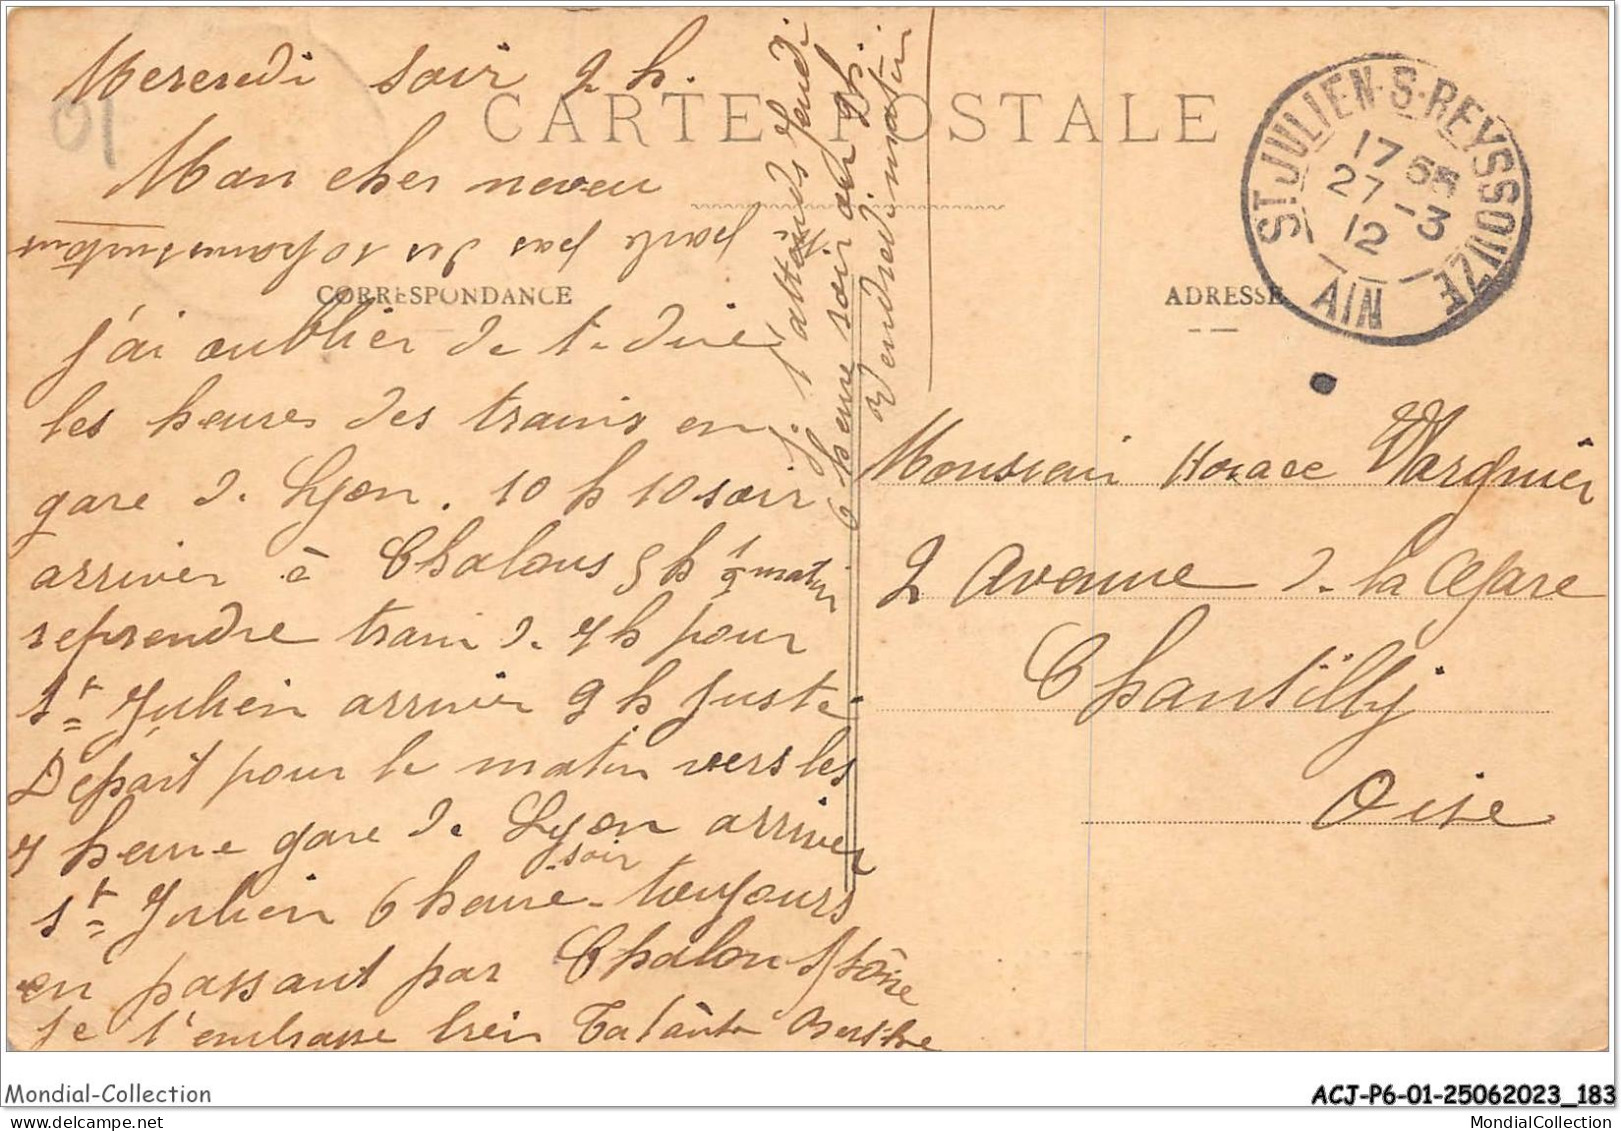 Mercredi soir 2 h.
01
CARTE POSTALE
Mon cher neveu
parle pas des 10
CORRESPONDANCE
j'ai oublier de te dire
les heures des trains en
gare de Lyon. 10 h 10 soir
arriver à Chalons 5 h 1/2 matin
reprendre train de 7 h pour
St Julien arriver 9 h juste
Départ pour le matin vers les
7 heure gare de Lyon arriver
St Julien 6 heure soir toujours
en passant par Chalon s/ Saône
Je t'embrasse bien Ta tante Berthe
Je t'attends Jeudi
6 heure soir ou 9 h.
Vendredi matin
ST JULIEN-S-REYSSOUZE
17 55
27 -3
12
AIN
ADRESSE
Monsieur Horace Wargnier
2 Avenue de la Gare
Chantilly
Oise
Mondial-Collection
ACJ-P6-01-25062023_183
MondialCollection.com